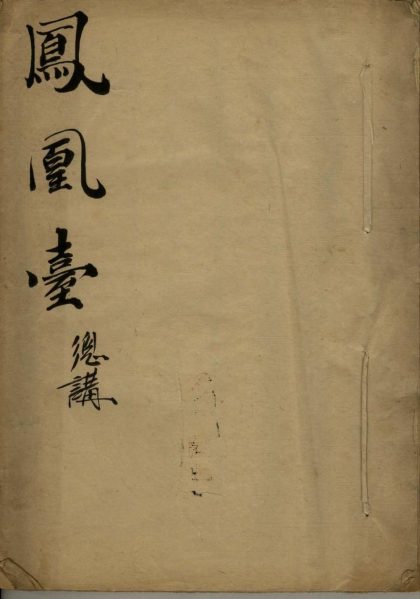 鳳凰臺
總講